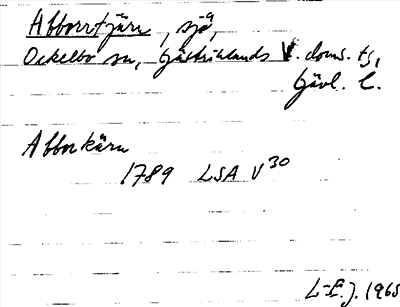 Abborrtjärn, sjö,
Ockelbo sn, Gästriklands V. doms. ts,
Gävl. l.
Abborkärn
1789 LSA V 30
L-E.J. 1965